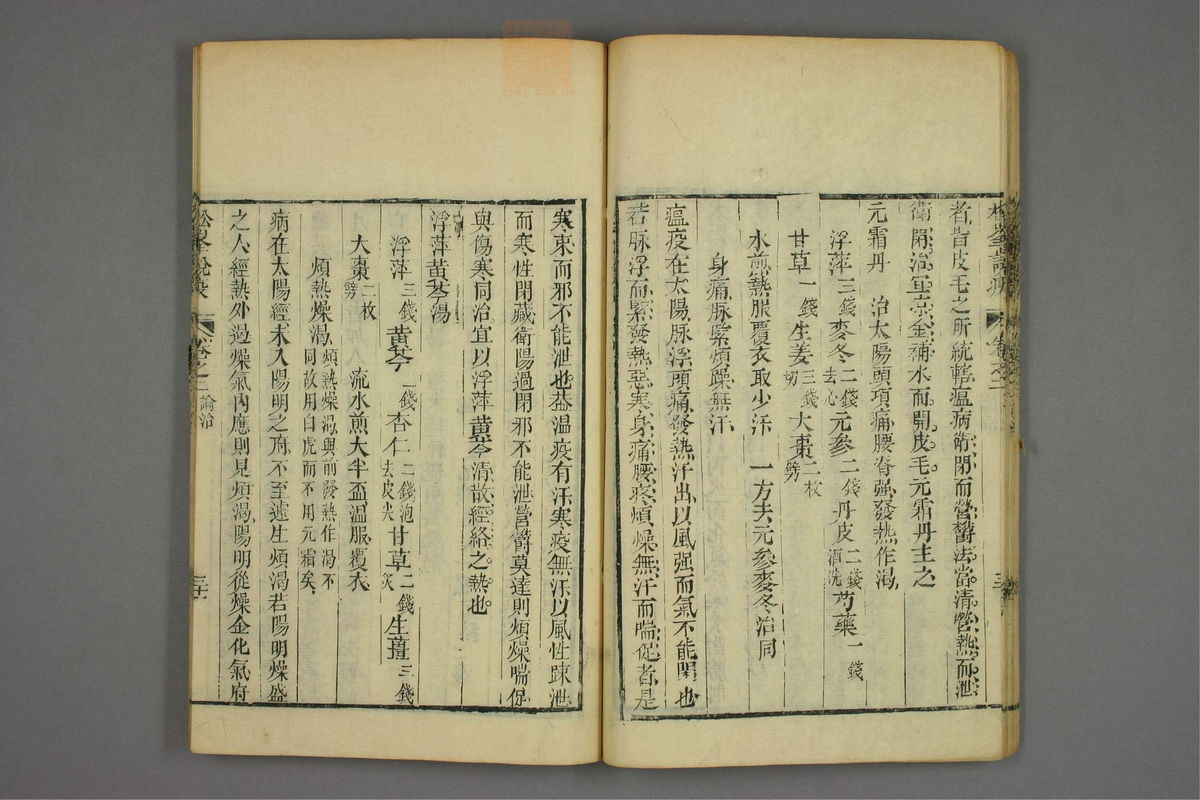 者皆皮毛之所統轄瘟病衛閉而營鬱法當清營熱而泄
衛閉治宜涼金補水而開皮毛元霜丹主之
元霜丹　治太陽頭項痛腰脊强發熱作渴
浮萍三錢麥冬二錢去心元參二錢丹皮二錢酒洗芍藥一錢
甘草一錢生姜三錢切大棗二枚劈
水煎熱服覆衣取少汗　一方去元參麥冬治同
身痛脉緊煩躁無汗
瘟疫在太陽脉浮頭痛發熱汗出以風强而氣不能閉也
若脉浮而緊發熱惡寒身痛腰疼煩燥無汗而喘促者是
寒束而邪不能泄也葢溫疫有汗寒疫無汗以風性疎泄
而寒性閉藏衛陽過閉邪不能泄營鬱莫達則煩燥喘促
與傷寒同治宜以浮萍黄芩清散經絡之熱也
浮萍黄芩湯
浮萍三錢黄芩一錢杏仁二錢泡去皮尖甘草二錢炙生薑三錢
大棗二枚劈　流水煎大半盃溫服覆衣
煩熱燥渴煩熱燥渴與前發熱作渴不同故用白虎而不用元霜矣
病在太陽經未入陽明之府不至遽生煩渴若陽明燥盛
之人經熱外遏燥氣內應則見煩渴陽明從燥金化氣府
松峯說疫　卷之二　論治